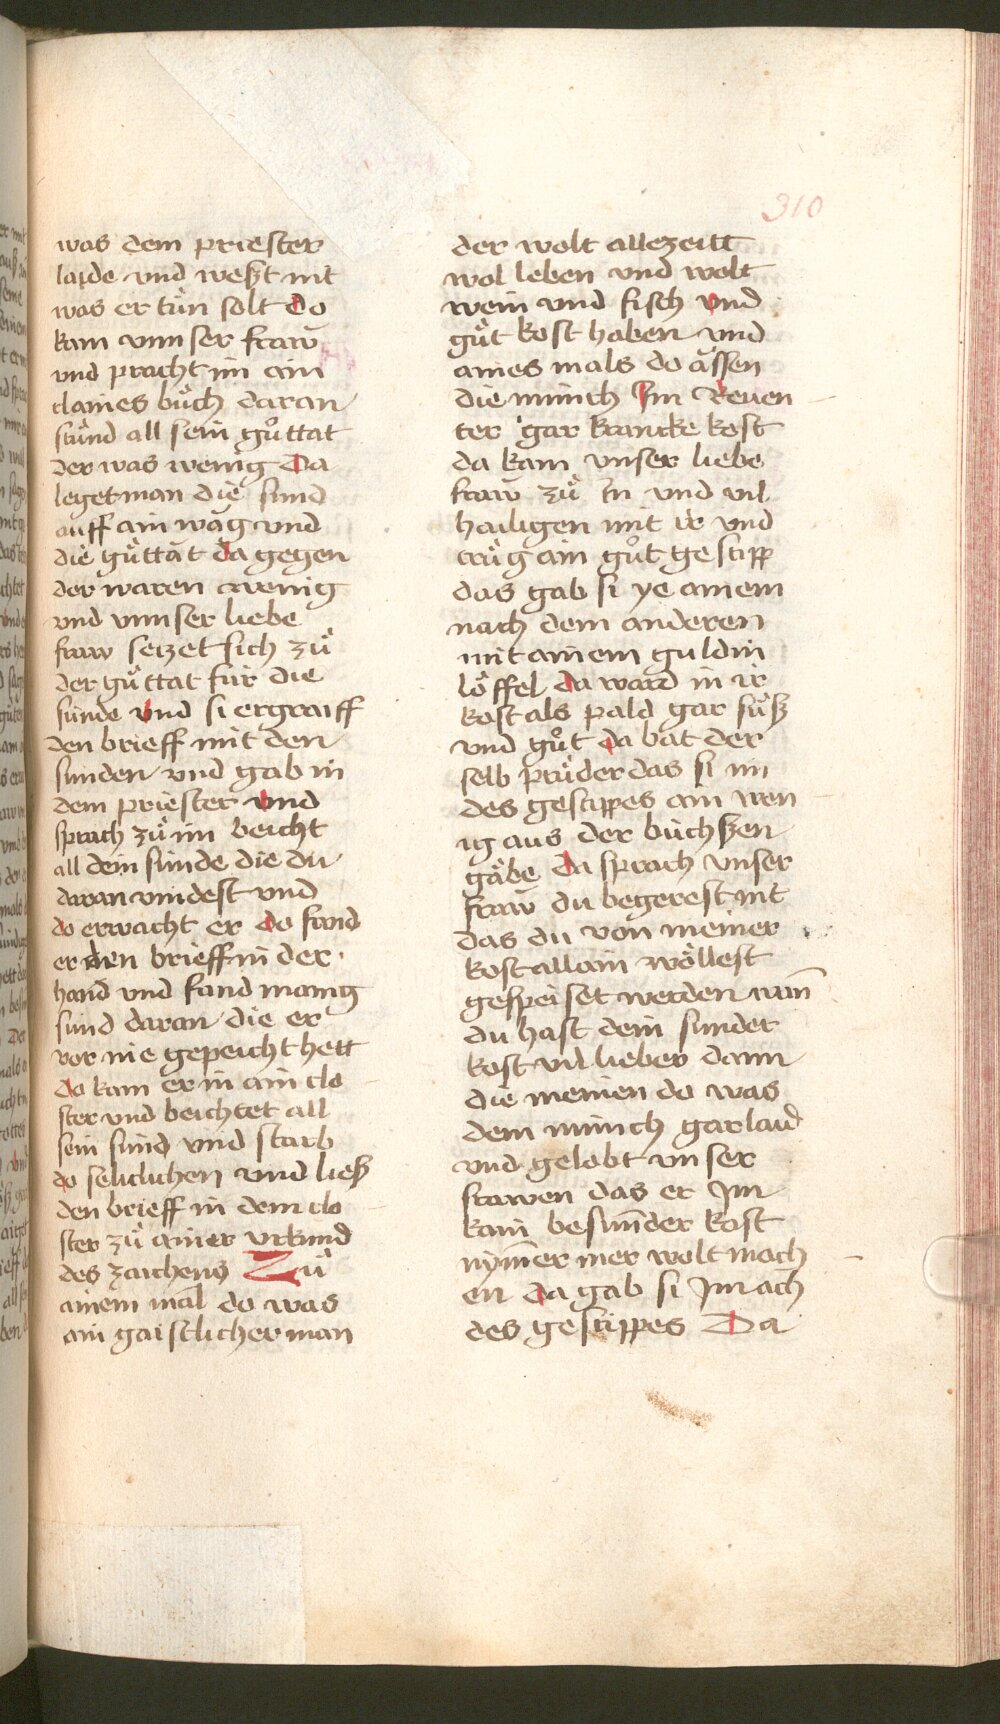 310
was dem priester
laide vnd weßt nit
was er tůn solt do
kam vnnser fraw
vnd pracht im ain
claines bůch daran
stůnd all sein gůttat
der was wenig Da
leget man die sünd
auff ain wag vnd
die gůttat da gegen
der waren wenig
vnd vnnser liebe
fraw setzet sich zů
der gůttat für die
sünde vnd si ergraiff
den brieff mit den
sünden vnd gab in
dem priester vnd
sprach zů im beicht
all dein sünde die du
daran vindest vnd
do erwacht er do fand
er den brieff in der
hand vnd fand manig
sünd daran die er
vor nie gepeicht hett
do kam er in ain clo
ster vnd beichtet all
sein sünd vnd starb
do seliclichen vnd ließ
den brieff in dem clo
ster zů ainer vrkund
des zaichens Zů
ainem mal do was
ain gaistlicher man
der wolt allezeitt
wol leben vnd wolt
wein vnd fisch vnd
gůt kost haben vnd
aines mals do assen
die münich Im Reuen
ter gar krancke kost
da kam vnser liebe
fraw zů In vnd vil
hailigen mit ir vnd
trůg ain gůt gestipp
das gab si ye ainem
nach dem anderen
mit ainem guldin
löffel da ward in ir
kost als pald gar sůß
vnd gůt da bat der
selb průder das si im
des gestippes ain wen
ig aus der büchßen
gäbe da sprach vnser
fraw du begerest nit
das du von meiner
kost allain wöllest
gespeiset werden wan̄
du hast dein sunder
kost vil lieber dann
die meinen do was
dem münich gar laid
vnd gelobt vnser
frawen das er Im
kain besunder kost
nym̄er mer wolt mach
en da gab si Im ach
des gestippes Da